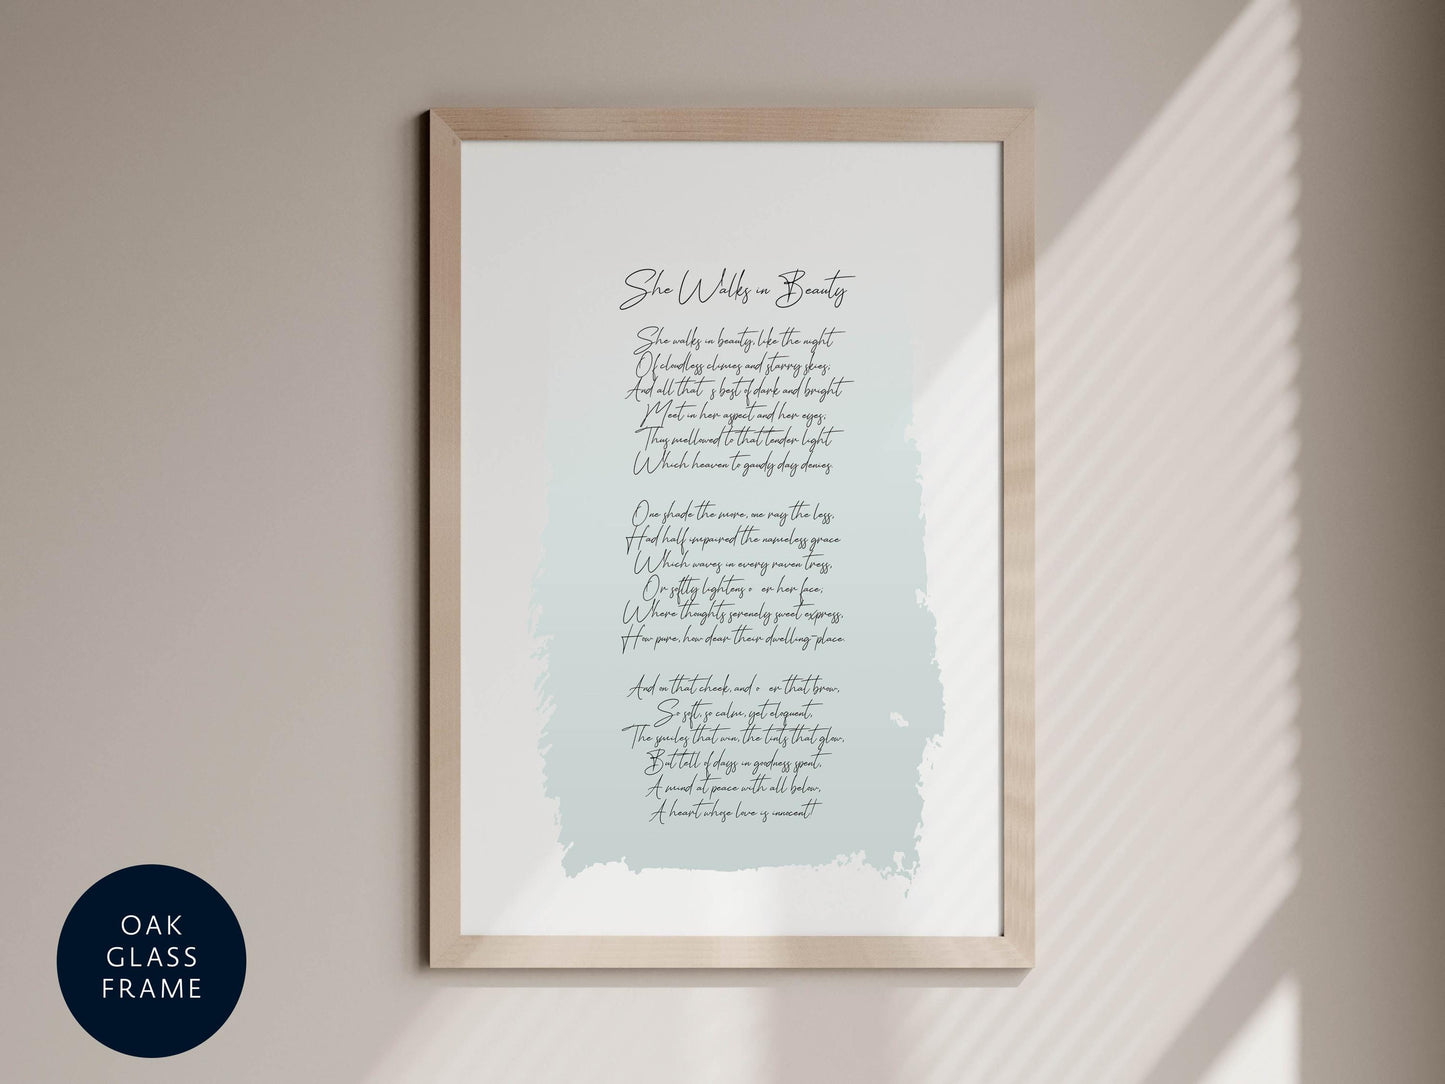 She Walks in Beauty
She walks in beauty, like the night
Of cloudless climes and starry skies;
And all that s best of dark and bright
Meet in her aspect and her eyes;
Thus mellowed to that tender light
Which heaven to gaudy day denies.
One shade the more, one ray the less,
Had half impaired the nameless grace
Which waves in every raven tress,
Or softly lightens o er her face;
Where thoughts serenely sweet express,
How pure, how dear their dwelling-place.
And on that cheek, and o er that brow,
So soft, so calm, yet eloquent,
The smiles that win, the tints that glow,
But tell of days in goodness spent,
A mind at peace with all below,
A heart whose love is innocent!
OAK
GLASS
FRAME